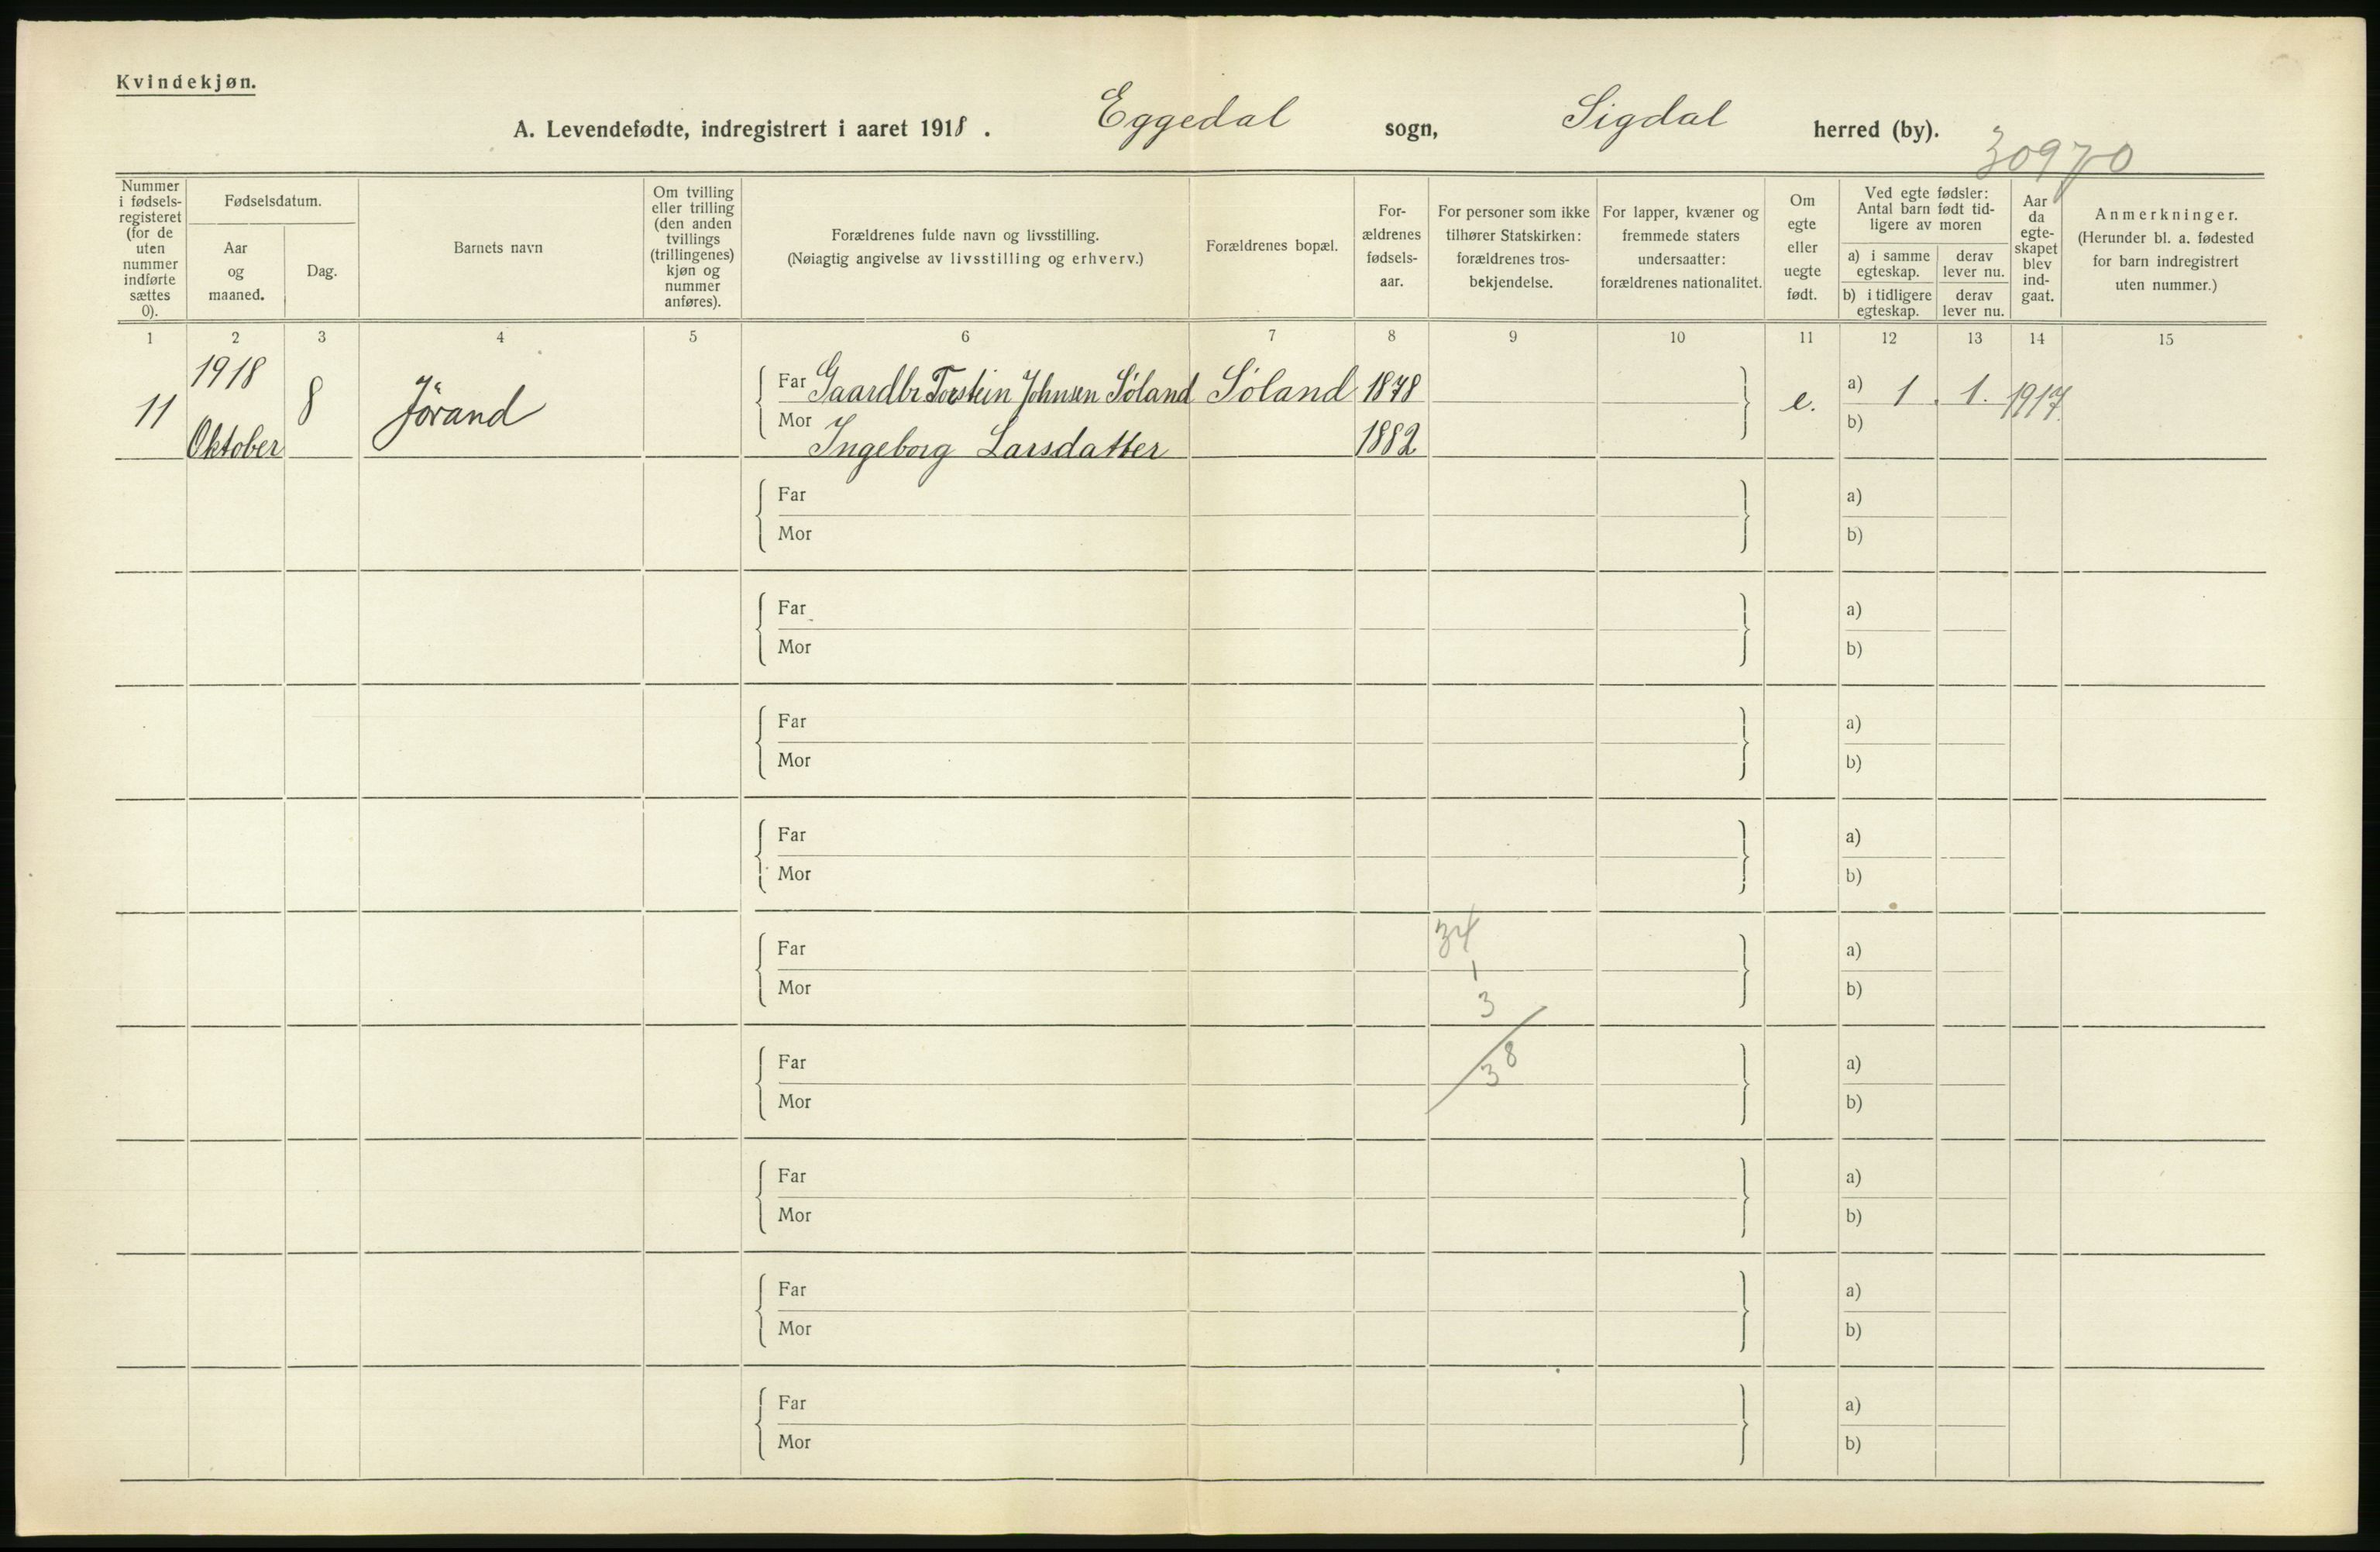 Kvindekjøn.
A. Levendefødte, indregistrert i aaret 1918. Eggedal sogn, Sigdal herred (by).
30970
Nummer i fødsels-registeret (for de uten nummer indførte sættes 0).
Fødselsdatum.
Aar og maaned.
Dag.
Barnets navn
Om tvilling eller trilling (den anden tvillings (trillingenes) kjøn og nummer anføres).
Forældrenes fulde navn og livsstilling.
(Nøiagtig angivelse av livsstilling og erhverv.)
Forældrenes bopæl.
For-ældrenes fødsels-aar.
For personer som ikke tilhører Statskirken: forældrenes tros-bekjendelse.
For lapper, kvæner og fremmede staters undersaatter: forældrenes nationalitet.
Om egte eller uegte født.
Ved egte fødsler: Antal barn født tid-ligere av moren
a) i samme egteskap.
derav lever nu.
b) i tidligere egteskap.
derav lever nu.
Aar da egte-skapet blev ind-gaat.
Anmerkninger.
(Herunder bl. a. fødested for barn indregistrert uten nummer.)
1 2 3 4 5 6 7 8 9 10 11 12 13 14 15
11 1918 Oktober 8 Jørand
Far Gaardbr Torstein Johnsen Söland Söland 1878 e. a) 1. 1. 1917.
Mor Ingeborg Larsdatter 1882 b)
Far a)
Mor b)
Far a)
Mor b)
Far a)
Mor b)
Far a)
Mor b)
34
Far a)
1
Mor b)
3
Far 38 a)
Mor b)
Far a)
Mor b)
Far a)
Mor b)
Far a)
Mor b)